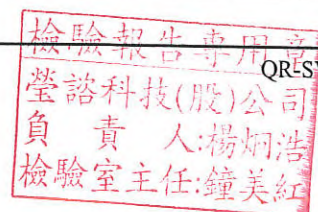 檢驗報告專用章
QR-SY
瑩諮科技(股)公司
負責人:楊炯浩
檢驗室主任:鐘美紅